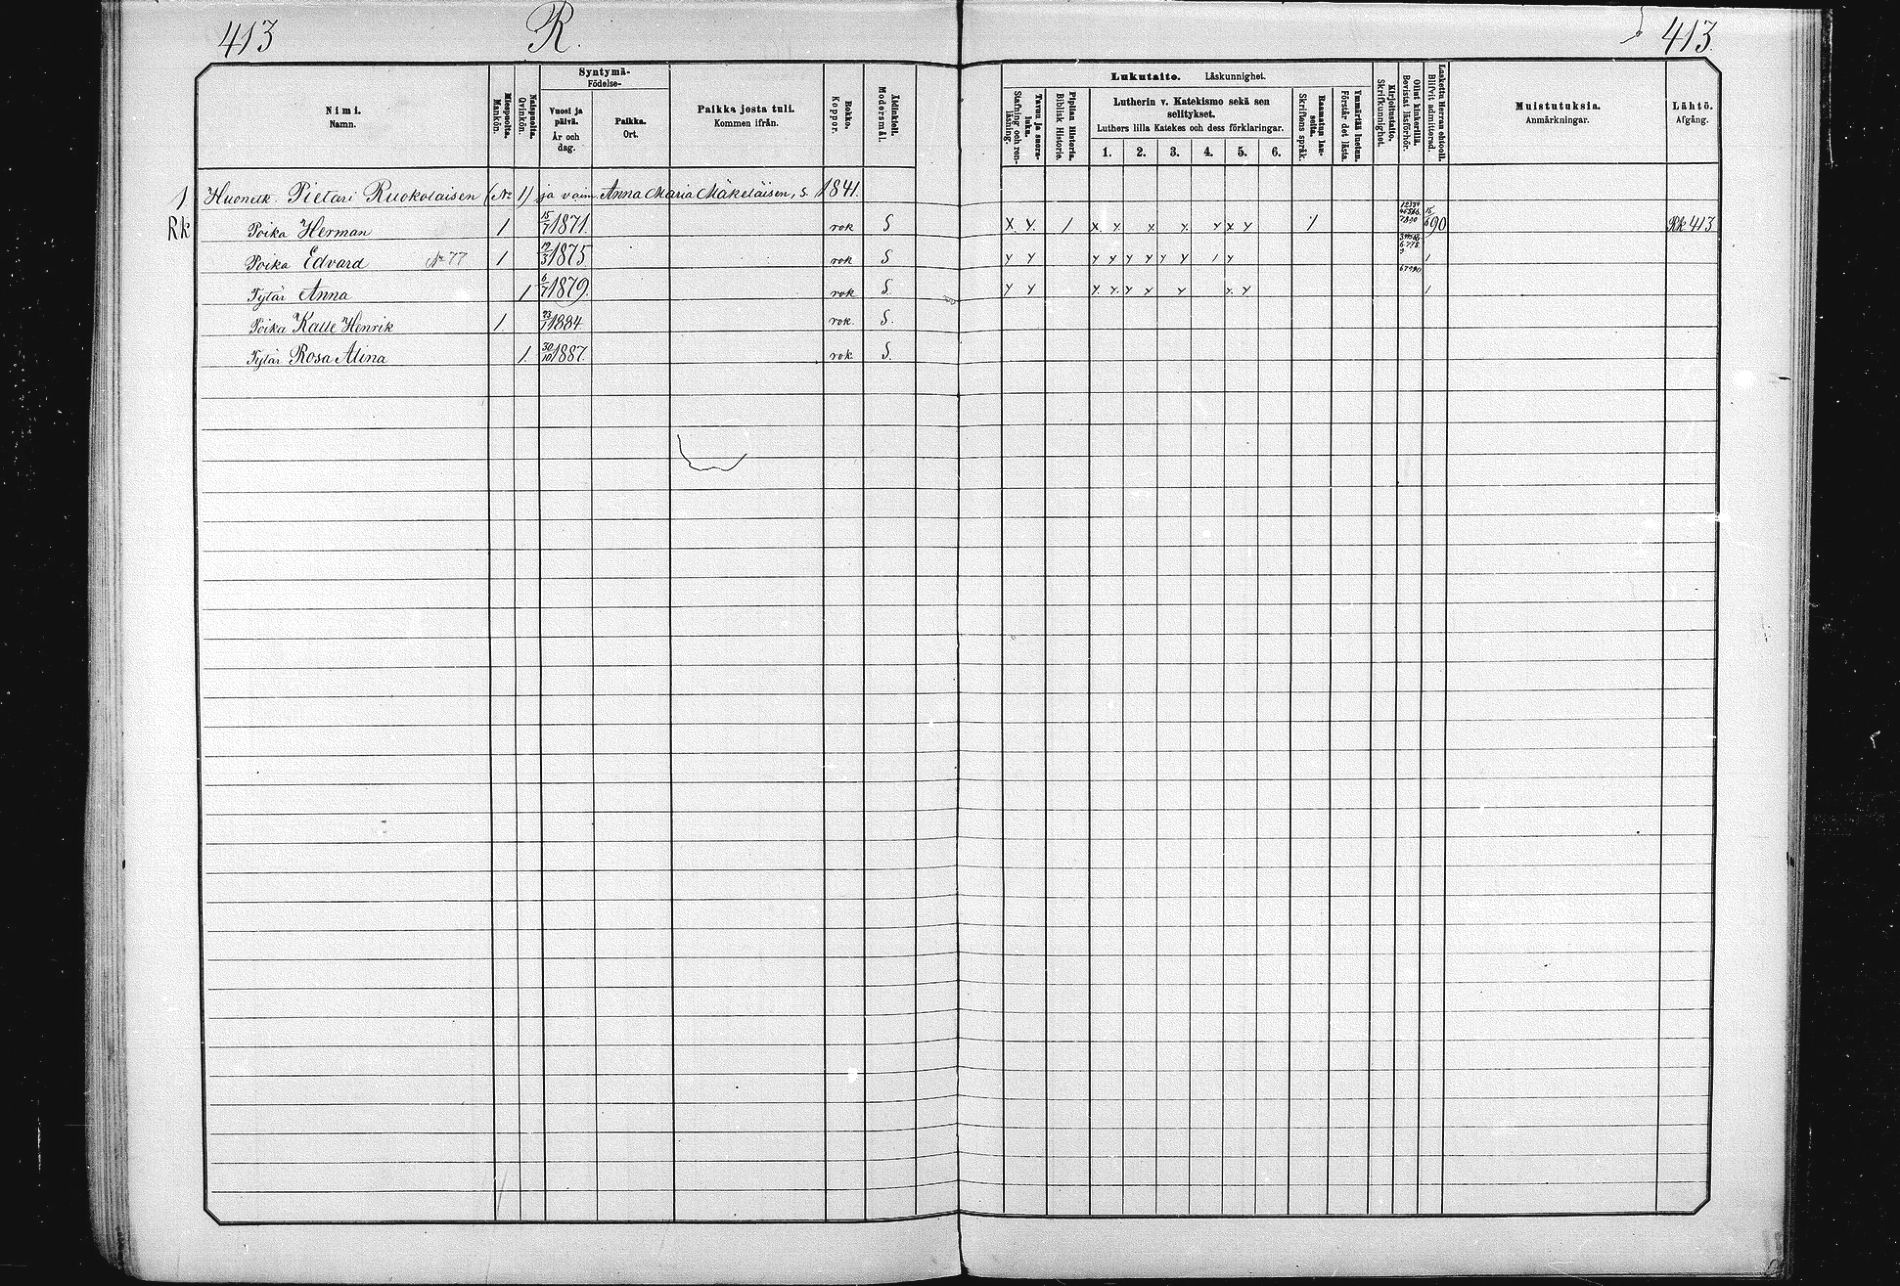 413 R. 413.
Nimi. Namn.
Miespuolta. Mankön.
Naispuolta. Qvinkön.
Syntymä- Födelse-
Vuosi ja päivä. År och dag.
Paikka. Ort.
Paikka josta tuli. Kommen ifrån.
Rokko. Koppor.
Äidinkieli. Modersmål.
Lukutaito. Läskunnighet.
Tavuu ja suora-luku. Stafning och ren-läsning.
Piplian Historia. Biblisk Historie.
Lutherin v. Katekismo sekä sen selitykset.
Luthers lilla Katekes och dess förklaringar.
1. 2. 3. 4. 5. 6.
Raamatun lau-seita. Skriftens språk.
Ymmärtää luetun. Förstår det lästa.
Kirjoitustaito. Skrifkunnighet.
Ollut kinkerillä. Bevistat läsförhör.
Laskettu Herran ehtooll. Blifvit admitterad.
Muistutuksia. Anmärkningar.
Lähtö. Afgång.
1 Huonek. Pietari Ruokolaisen (No 1) ja vaim. Anna Maria Mäkeläisen, s. 1841.
Rk Poika Herman 1 15/7 1871. rok S X Y. / X Y Y Y. Y X Y / 90 Rk 413
Poika Edvard No 77 1 12/3 1875 rok S Y Y Y Y Y Y Y Y / Y /
Tytär Anna 1 6/7 1879. rok S. Y Y Y. Y. Y Y Y Y. Y /
Poika Kalle Henrik 1. 23/1 1884 rok. S.
Tytär Rosa Alina 1. 30/10 1887. rok. S.